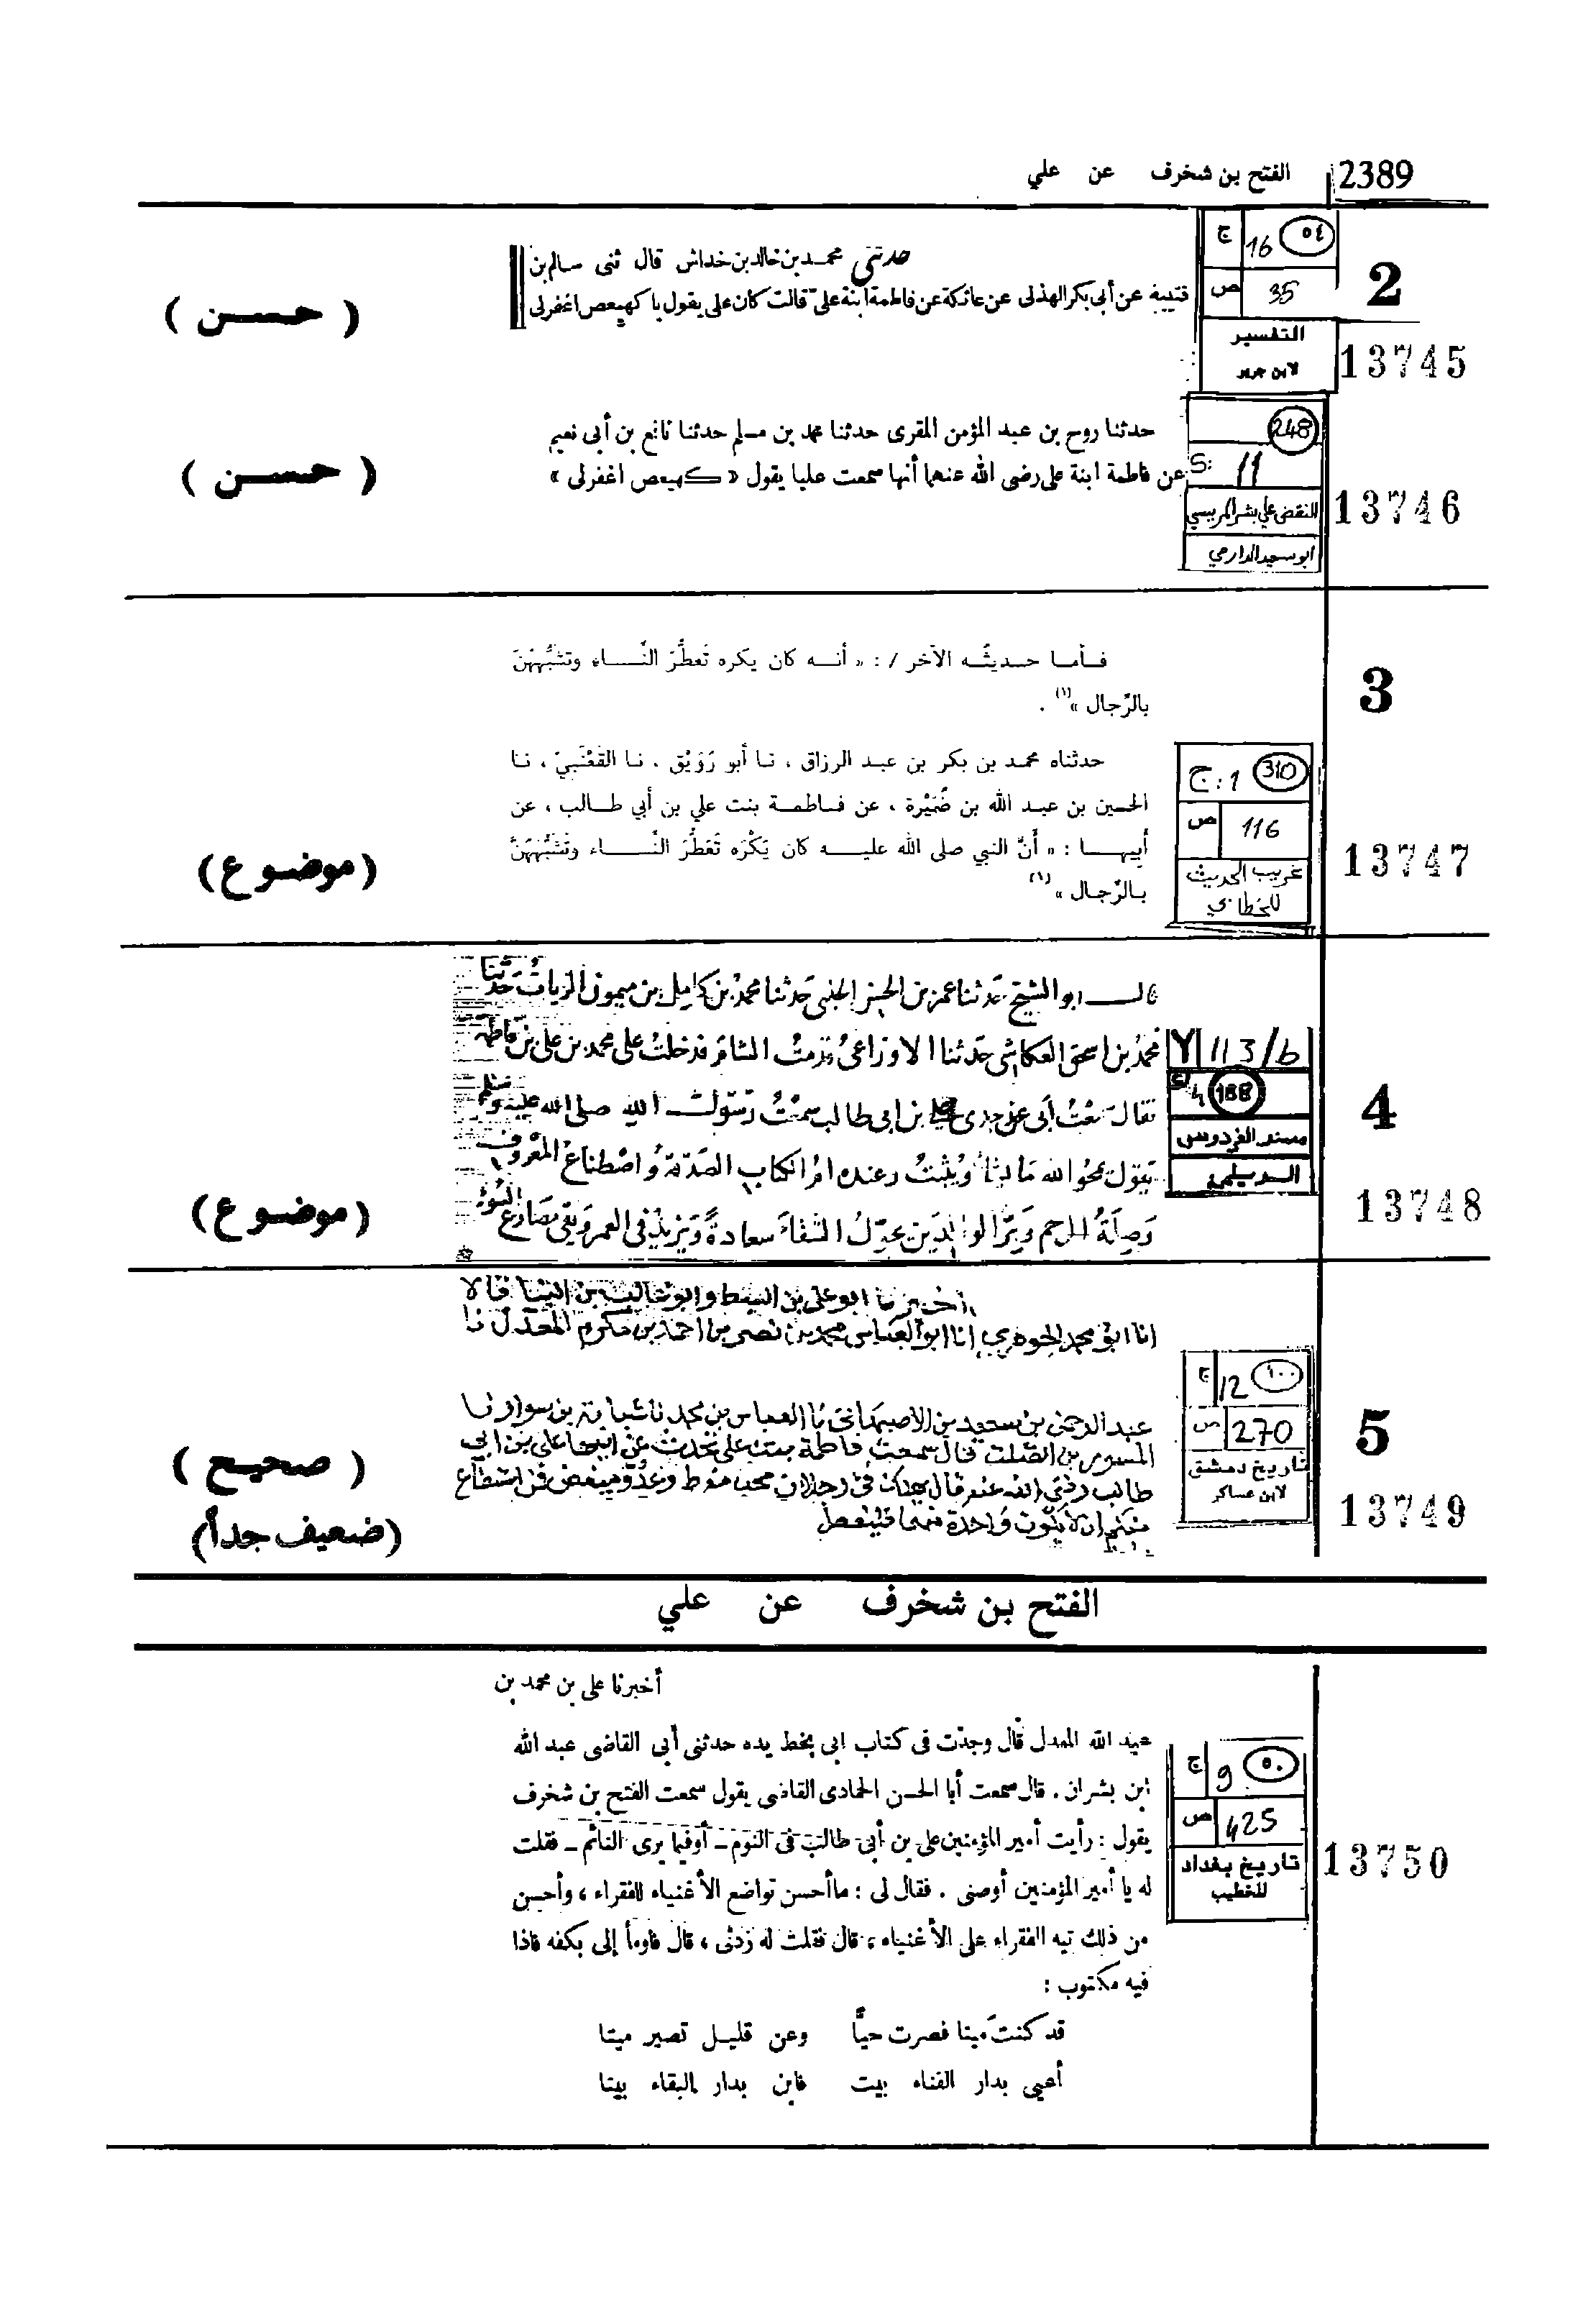 2389 الفتح بن شخرف عن علي
2
ج 16 ٥٤
ص 35
التفسير
لابن جرير
13745
حدثني محمد بن خالد بن خداش قال ثنى سالم بن
قتيبة عن أبى بكر الهذلى عن عاتكة عن فاطمة ابنة على قالت كان على يقول يا كهيعص اغفر لى
( حسن )
248
S: 11
النقض علي بشر المريسي
ابو سعيد الدارمي
13746
حدثنا روح بن عبد المؤمن المقرى حدثنا محمد بن مسلم حدثنا نافع بن أبى نعيم
عن فاطمة ابنة على رضى الله عنهما أنها سمعت عليا يقول « كهيعص اغفر لى »
( حسن )
3
فأما حديثه الآخر / : « أنه كان يكره تَعطُّرَ النِّساء وتَشَبُّهَهُنَّ
بالرِّجال »(١) .
حدثناه محمد بن بكر بن عبد الرزاق ، نا أبو رُوَيْق ، نا القَعْنَبيّ ، نا
الحسين بن عبد الله بن ضُمَيْرة ، عن فاطمة بنت علي بن أبي طالب ، عن
أبيها : « أنَّ النبي صلى الله عليه كان يَكْرَه تَعَطُّرَ النِّساء وتَشَبُّهَهُنَّ
بالرِّجال »(١)
ج : 1 310
ص 116
غريب الحديث
للخطابي
13747
(موضوع)
4
قال ابو الشيخ حدثنا عمر بن الحسن الحلبي حدثنا محمد بن كامل بن ميمون الزيات حدثنا
محمد بن اسحق العكاشي حدثنا الاوزاعي قدمت الشام فدخلت على محمد بن علي بن فاطمة
فقال سمعت أبي عن جدي علي بن ابي طالب سمعت رسول الله صلى الله عليه وسلم
يقول يمحو الله ما يشاء ويثبت وعنده ام الكتاب الصدقة واصطناع المعروف
وصلة الرحم وبر الوالدين تحول الشقاء سعادة ويزيد في العمر ويقي مصارع السوء
113/b
188
مسند الفردوس
الديلمي
13748
(موضوع)
5
أخبرنا ابو علي بن السبط وابو غالب بن البنا قالا
انا ابو محمد الجوهري انا ابو العباس محمد بن نصر بن احمد بن مكرم المعدل نا
عبد الرحمن بن سعيد بن الاصبهاني نا العباس بن محمد نا شبابة بن سوار نا
بن الصلت قال سمعت فاطمة بنت علي تحدث عن ابيها علي بن ابي
طالب رضي الله عنه قال يهلك في رجلان محب مفرط وعدو مبغض فمن استطاع
منكم ان لا يكون واحدة منهما فليفعل
ج 12 ١٠٠
ص 270
تاريخ دمشق
لابن عساكر
13749
( صحيح )
(ضعيف جداً)
الفتح بن شخرف عن علي
أخبرنا على بن محمد بن
عبد الله المعدل قال وجدت فى كتاب ابى بخط يده حدثنى أبى القاضى عبد الله
ابن بشران . قال سمعت أبا الحسن الحمادى القاضى يقول سمعت الفتح بن شخرف
يقول : رأيت أمير المؤمنين على بن أبى طالب فى النوم ـ أو فيما يرى النائم ـ فقلت
له يا أمير المؤمنين أوصنى . فقال لى : ما أحسن تواضع الأغنياء للفقراء ، وأحسن
من ذلك تيه الفقراء على الأغنياء ، قال فقلت له زدنى ، قال فاومأ إلى بكفه فاذا
فيه مكتوب :
قد كنت ميتا فصرت حيًّا وعن قليل تصير ميتا
أعيى بدار الفناء بيت فابن بدار البقاء بيتا
ج 9 ٥٠
ص 425
تاريخ بغداد
للخطيب
13750